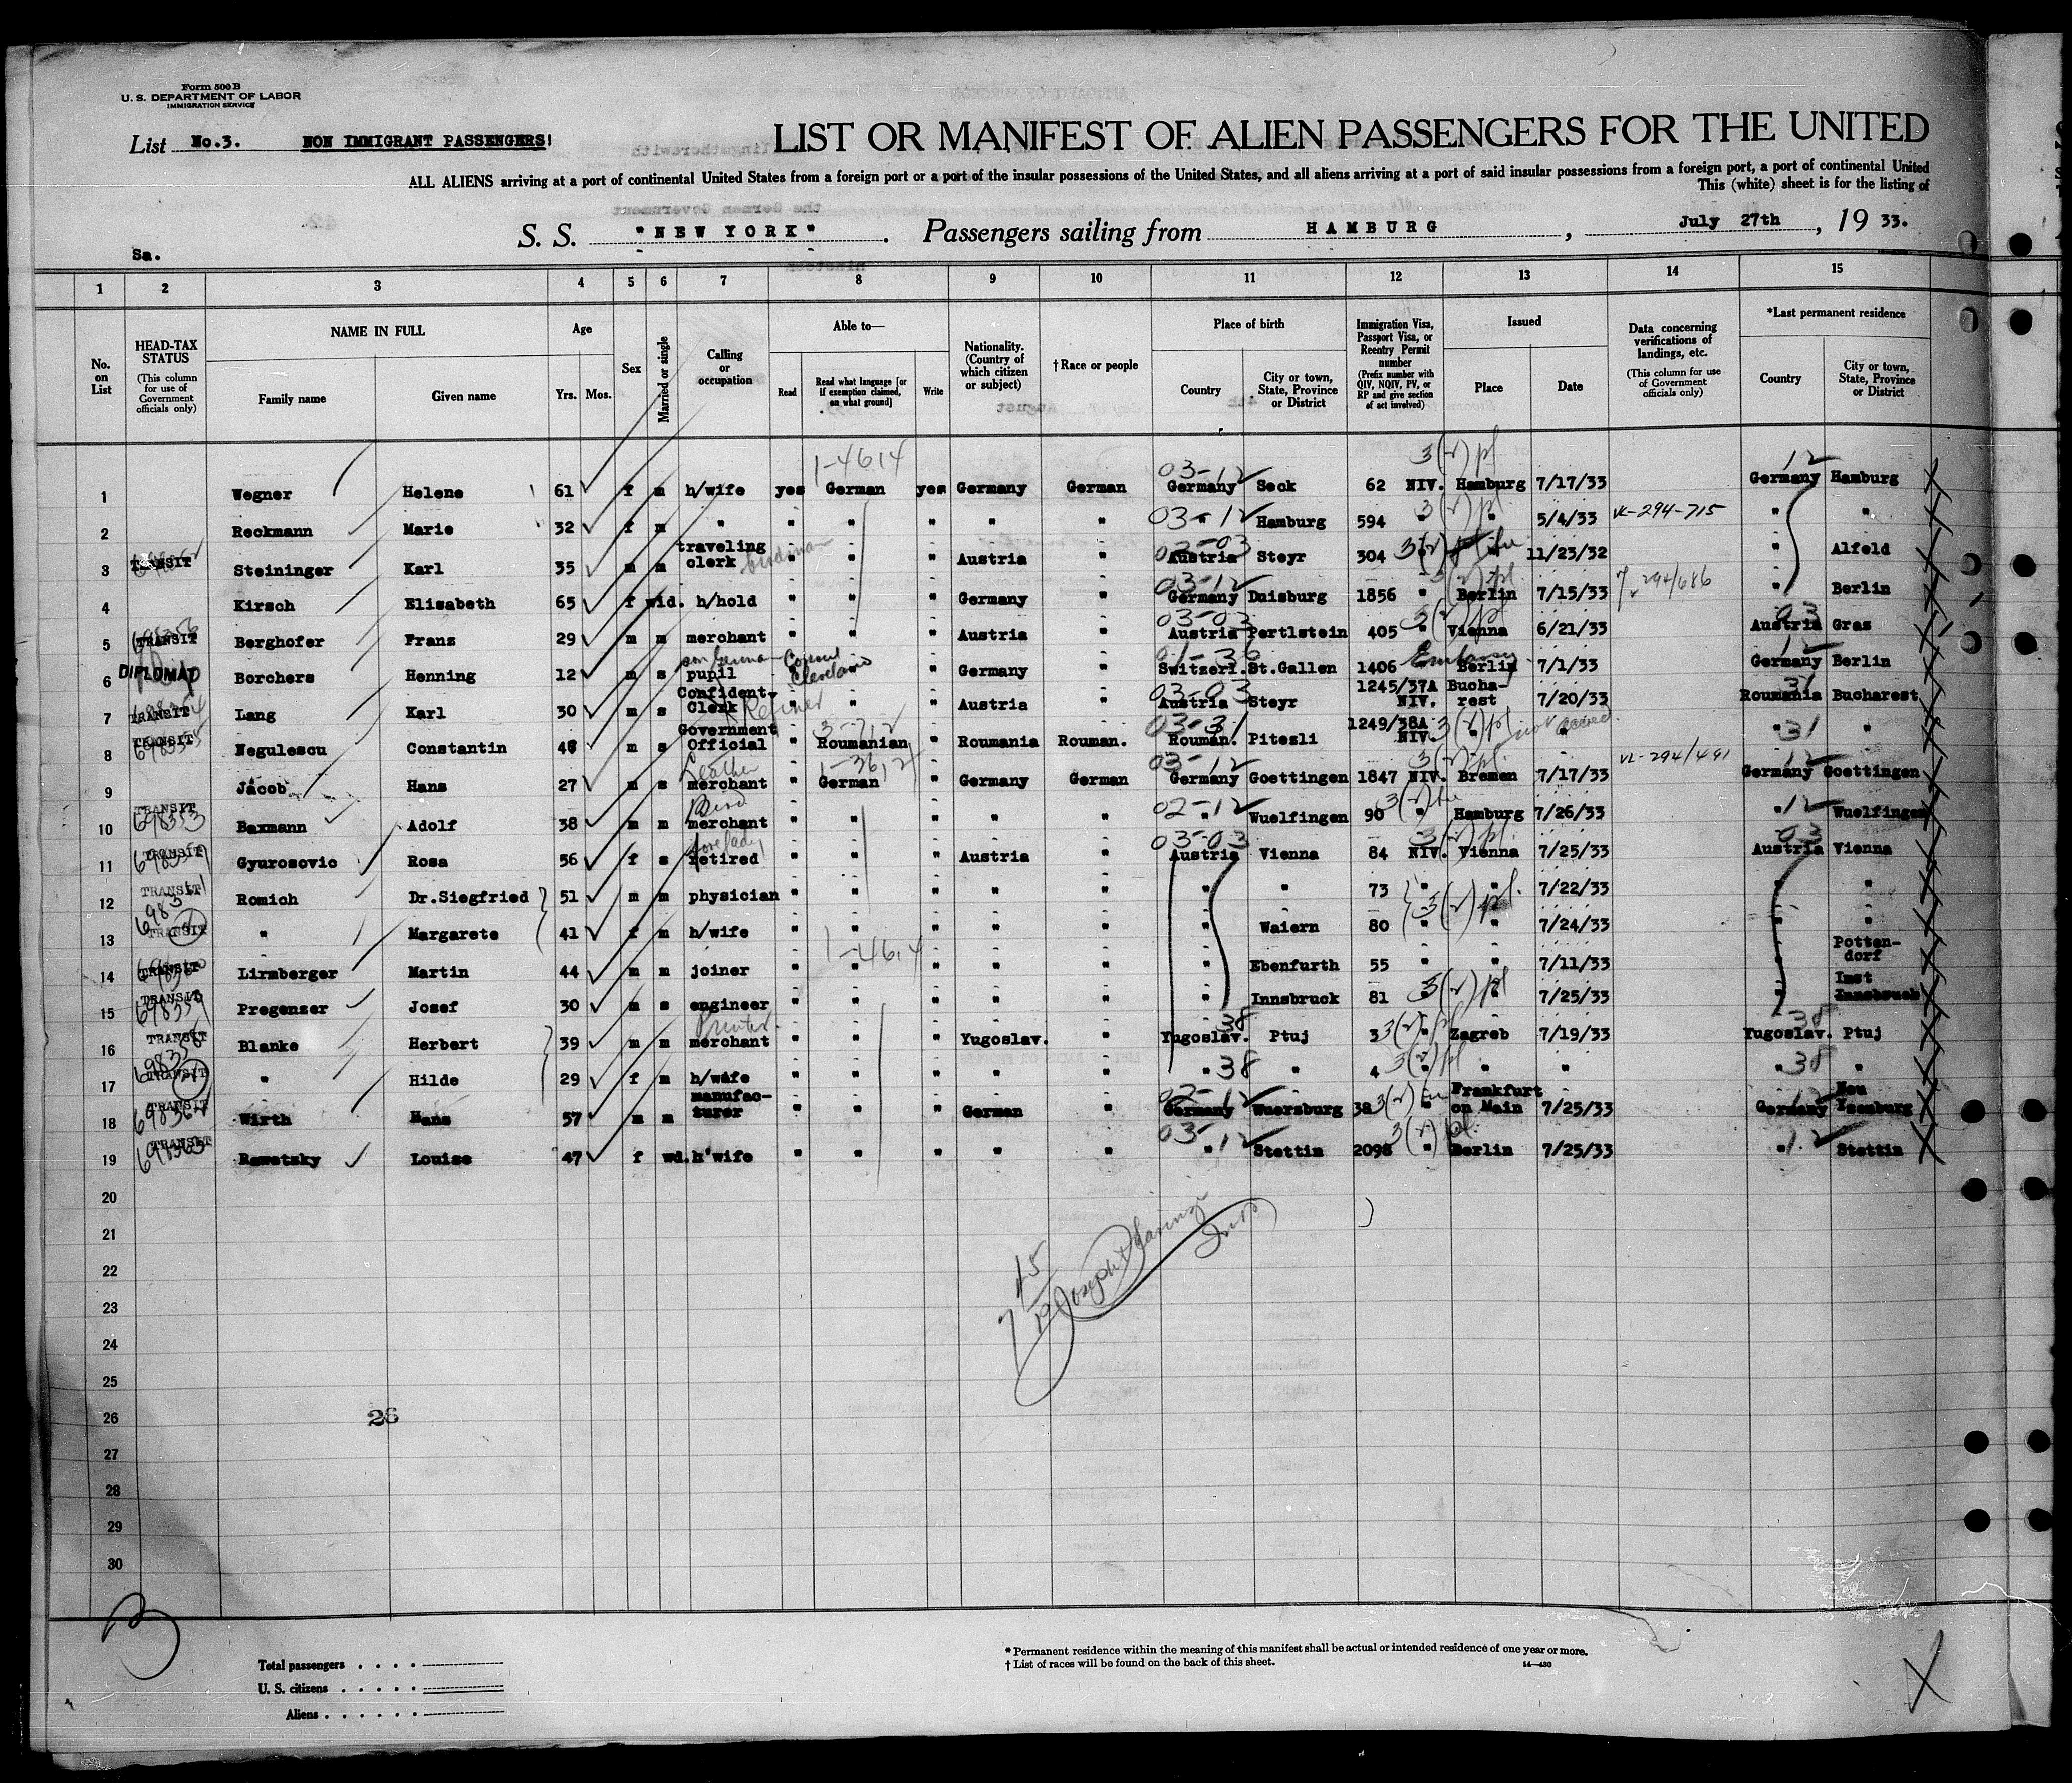 Form 500 B
U. S. DEPARTMENT OF LABOR
IMMIGRATION SERVICE
List No.3. NON IMMIGRANT PASSENGERS!
LIST OR MANIFEST OF ALIEN PASSENGERS FOR THE UNITED
ALL ALIENS arriving at a port of continental United States from a foreign port or a port of the insular possessions of the United States, and all aliens arriving at a port of said insular possessions from a foreign port, a port of continental United
This (white) sheet is for the listing of
S. S. "NEW YORK". Passengers sailing from HAMBURG, July 27th, 19 33.
Sa.
1 2 3 4 5 6 7 8 9 10 11 12 13 14 15
No. on List
HEAD-TAX STATUS (This column for use of Government officials only)
NAME IN FULL Family name Given name
Age Yrs. Mos.
Sex
Married or single
Calling or occupation
Able to— Read Read what language [or if exemption claimed, on what ground] Write
Nationality. (Country of which citizen or subject)
† Race or people
Place of birth Country City or town, State, Province or District
Immigration Visa, Passport Visa, or Reentry Permit number (Prefix number with QIV, NQIV, PV, or RP and give section of act involved)
Issued Place Date
Data concerning verifications of landings, etc. (This column for use of Government officials only)
*Last permanent residence Country City or town, State, Province or District
1-4614 03-12 3(2) pl 12
1 Wegner Helene 61 f m h/wife yes German yes Germany German Germany Seck 62 NIV. Hamburg 7/17/33 Germany Hamburg
2 Reckmann Marie 32 f m " " " " " " 03-12 " Hamburg 594 " " 5/4/33 VL-294-715 " "
3 TRANSIT Steininger Karl 35 m m traveling clerk " " " Austria " Austria Steyr 304 " 11/23/32 " Alfeld
4 Kirsch Elisabeth 65 f wid. h/hold " " " Germany " 03-12 Germany Duisburg 1856 " Berlin 7/15/33 294/686 " Berlin
5 TRANSIT Berghofer Franz 29 m m merchant " " " Austria " 03-03 Austria Pertlstein 405 " Vienna 6/21/33 Austria Graz
6 DIPLOMAT Borchers Henning 12 m s pupil Consul Cleveland " " " Germany " Switzerl. St.Gallen 1406 Embassy Berlin 7/1/33 Germany Berlin
7 TRANSIT Lang Karl 30 m s Confident. Clerk " " " Austria " 03-03 Austria Steyr 1245/37A NIV. Bucharest 7/20/33 Roumania Bucharest
8 TRANSIT Negulescu Constantin 48 m s Government Official " Roumanian " Roumania Rouman. 03-31 Rouman. Pitesli 1249/38A NIV. " " 31 " "
9 Jacob Hans 27 m s Leather merchant " German " Germany German 03-12 Germany Goettingen 1847 NIV. Bremen 7/17/33 VL-294/491 Germany Goettingen
10 TRANSIT 698353 Baxmann Adolf 38 m m merchant " " " " " 02-12 " Wuelfingen 90 " Hamburg 7/26/33 " 12 Wuelfingen
11 TRANSIT Gyurosovic Rosa 56 f s retired " " " Austria " 03-03 Austria Vienna 84 NIV. Vienna 7/25/33 03 Austria Vienna
12 TRANSIT Romich Dr.Siegfried 51 m m physician " " " " " " " 73 " " 7/22/33 " "
13 TRANSIT " Margarete 41 f m h/wife " " " " " " Waiern 80 " " 7/24/33 " "
14 TRANSIT Lirmberger Martin 44 m m joiner " 1-4614 " " " " " Ebenfurth 55 " " 7/11/33 " Pottendorf
15 TRANSIT Pregenzer Josef 30 m s engineer " " " " " " Innsbruck 81 " " 7/25/33 " Imst Innsbruck
16 TRANSIT Blanke Herbert 39 m m Printer merchant " " " Yugoslav. " 38 Yugoslav. Ptuj 3 " Zagreb 7/19/33 38 Yugoslav. Ptuj
17 TRANSIT " Hilde 29 f m h/wife " " " " " " 38 " 4 " " " " 38 "
18 TRANSIT Wirth Hans 57 m m manufacturer " " " German " 02-12 Germany Wuersburg 38 " Frankfurt on Main 7/25/33 Germany Neu Ysenburg
19 TRANSIT 698363 Rawetzky Louise 47 f wd. h'wife " " " " " 03-12 " Stettin 2098 " Berlin 7/25/33 " 12 Stettin
20
21
22
23
24
25
26
27
28
29
30
26
Total passengers
U. S. citizens
Aliens
* Permanent residence within the meaning of this manifest shall be actual or intended residence of one year or more.
† List of races will be found on the back of this sheet.
14—430